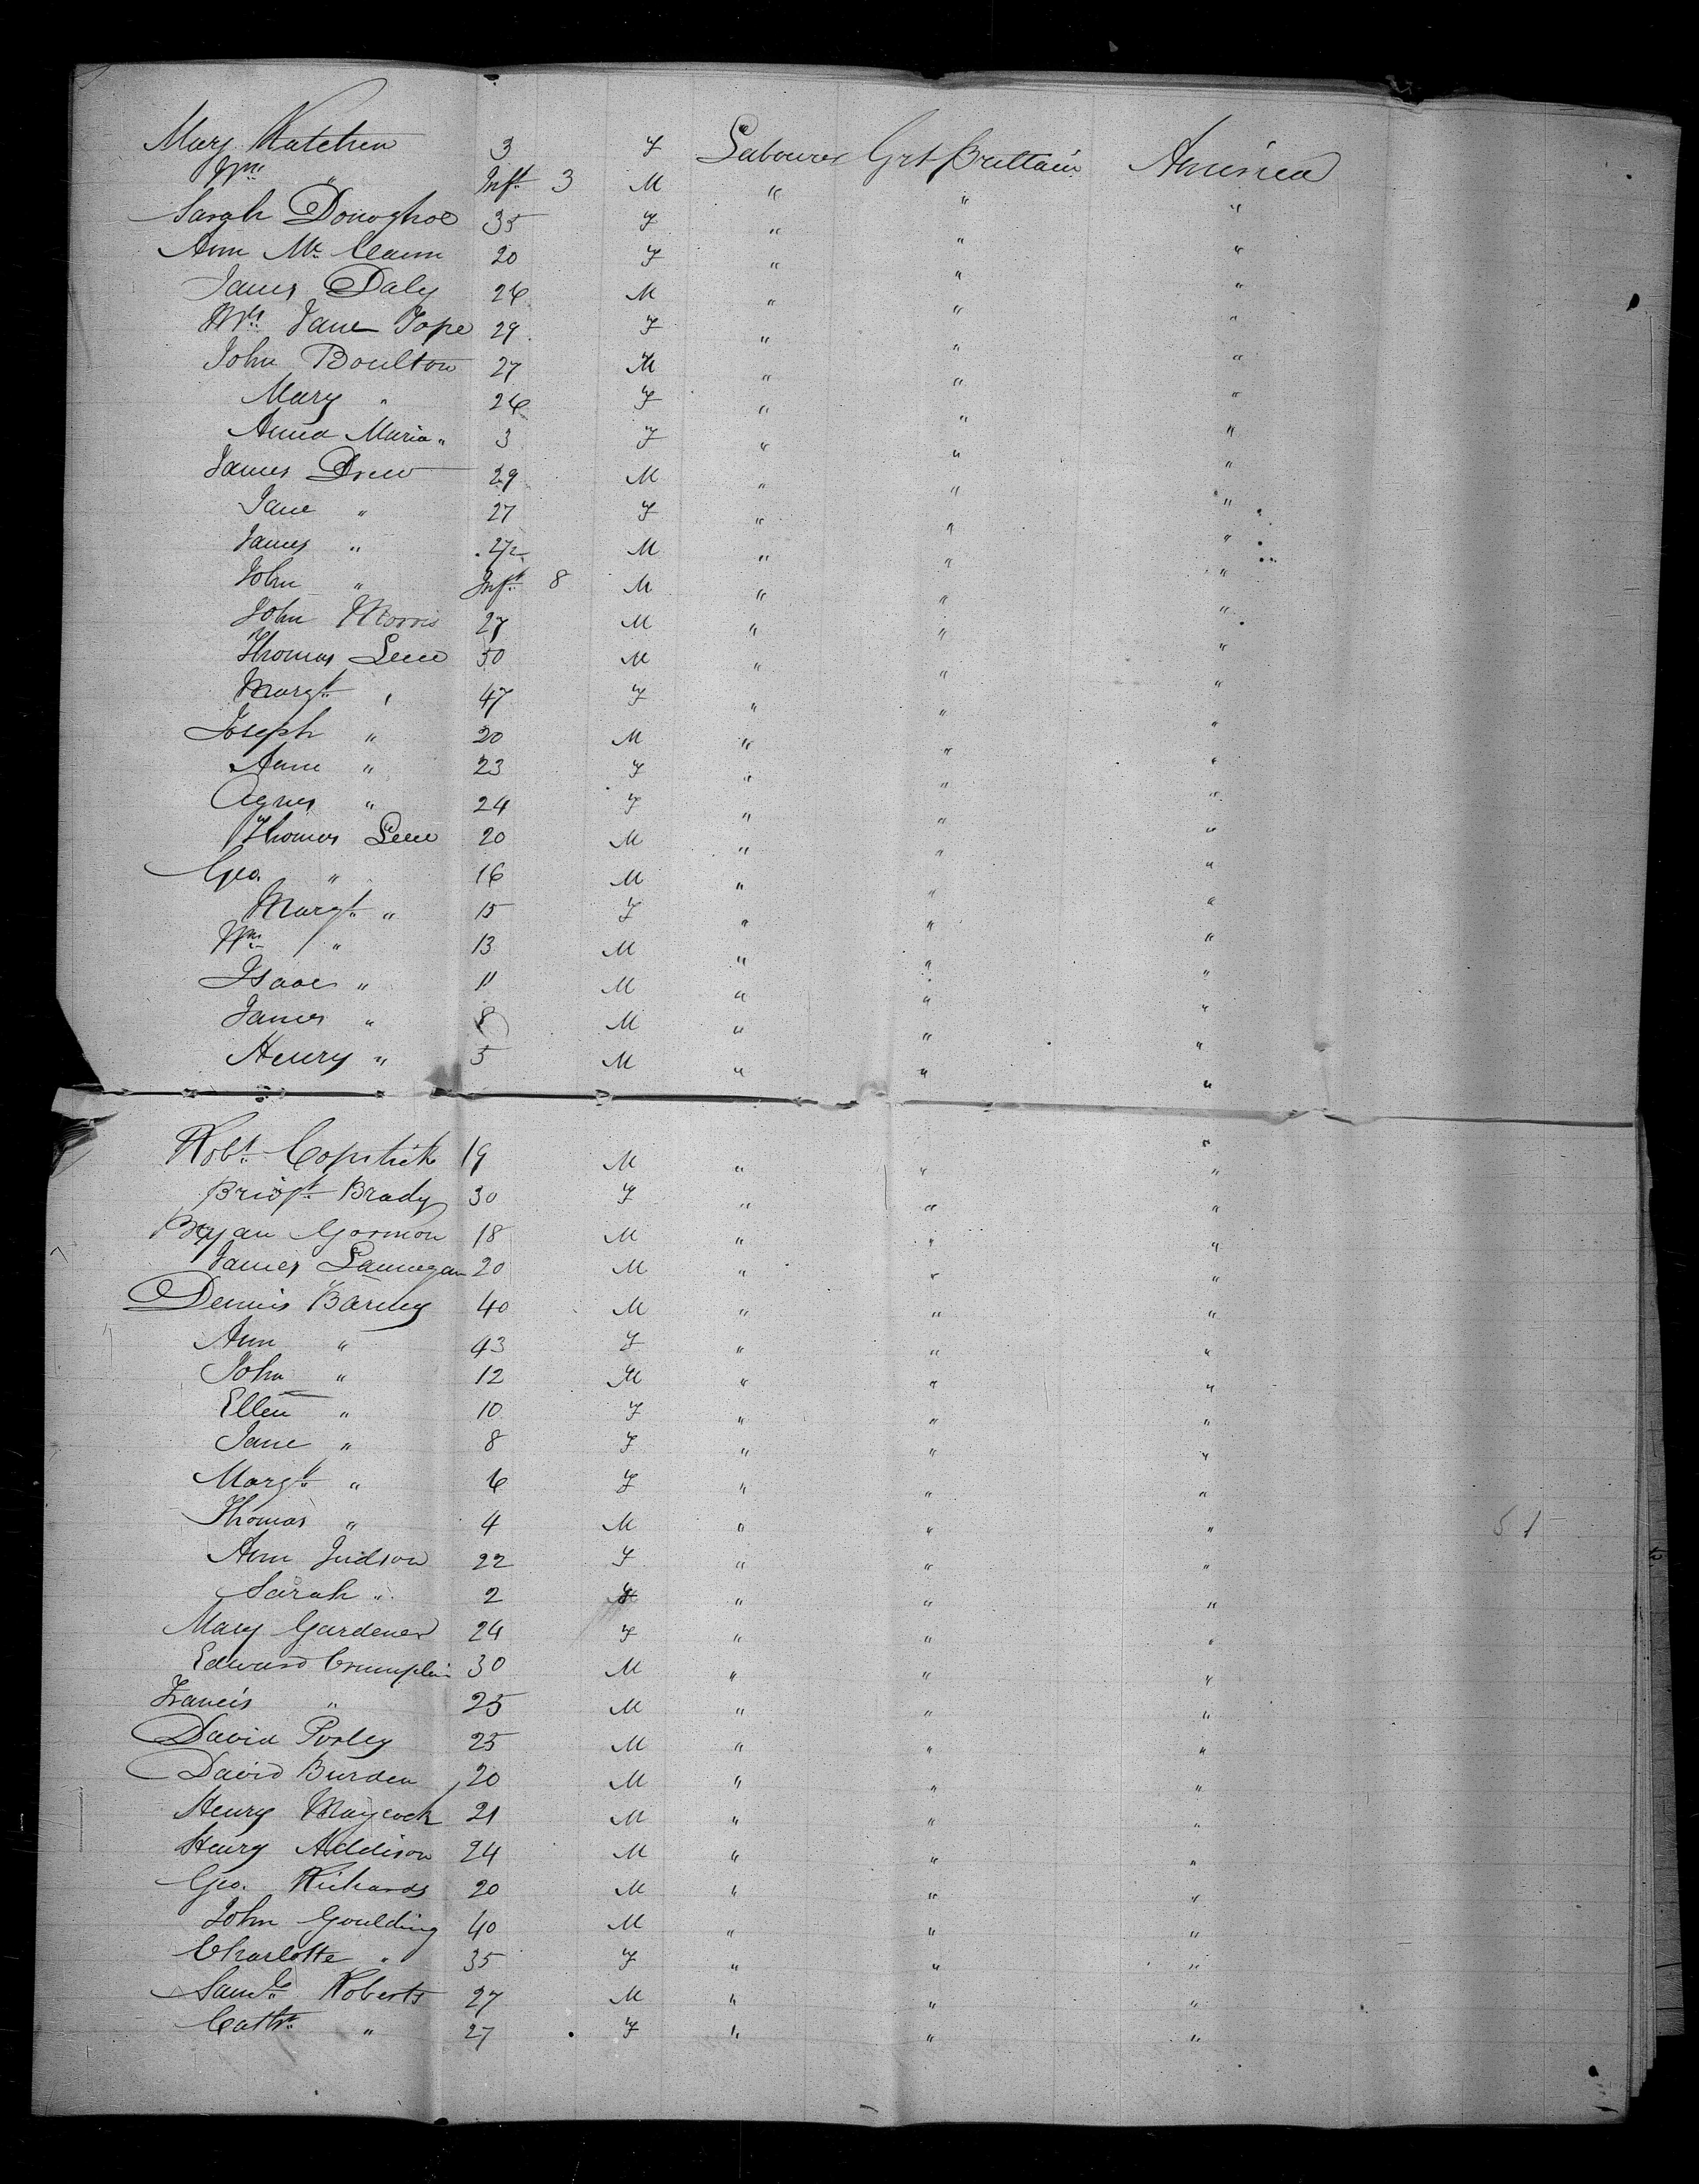 Mary Katchen 3 F Labourer Grt Brittain America
Wm " Inft 3 M " " "
Sarah Donoghoe 35 F " " "
Ann Mc Cann 20 F " " "
James Daly 26 M " " "
Mrs Jane Pope 29 F " " "
John Boulton 27 M " " "
Mary " 26 F " " "
Anna Maria " 3 F " " "
James Drew 29 M " " "
Jane " 27 F " " "
James " M " " "
John " Inft 8 M " " "
John Morris 27 M " " "
Thomas Leee 50 M " " "
Margt " 47 F " " "
Joseph " 20 M " " "
Anne " 23 F " " "
Agnes " 24 F " " "
Thomas Leee 20 M " " "
Geo. " 16 M " " "
Margt " 15 F " " "
Wm " 13 M " " "
Isaac " 11 M " " "
James " 8 M " " "
Henry " 5 M " " "
Robt Copstick 19 M " " "
Bridgt Brady 30 F " " "
Bryan Gormon 18 M " " "
James Lannegan 20 M " " "
Dennis Barney 40 M " " "
Ann " 43 F " " "
John " 12 M " " "
Ellen " 10 F " " "
Jane " 8 F " " "
Margt " 6 F " " "
Thomas " 4 M " " " 51
Ann Judson 22 F " " "
Sarah " 2 F " " "
Mary Gardener 24 F " " "
Edward Crumplin 30 M " " "
Francis " 25 M " " "
David Posley 25 M " " "
David Burden 20 M " " "
Henry Maycock 21 M " " "
Henry Addison 24 M " " "
Geo. Richards 20 M " " "
John Goulding 40 M " " "
Charlotte " 35 F " " "
Saml Roberts 27 M " " "
Cathe " 27 F " " "